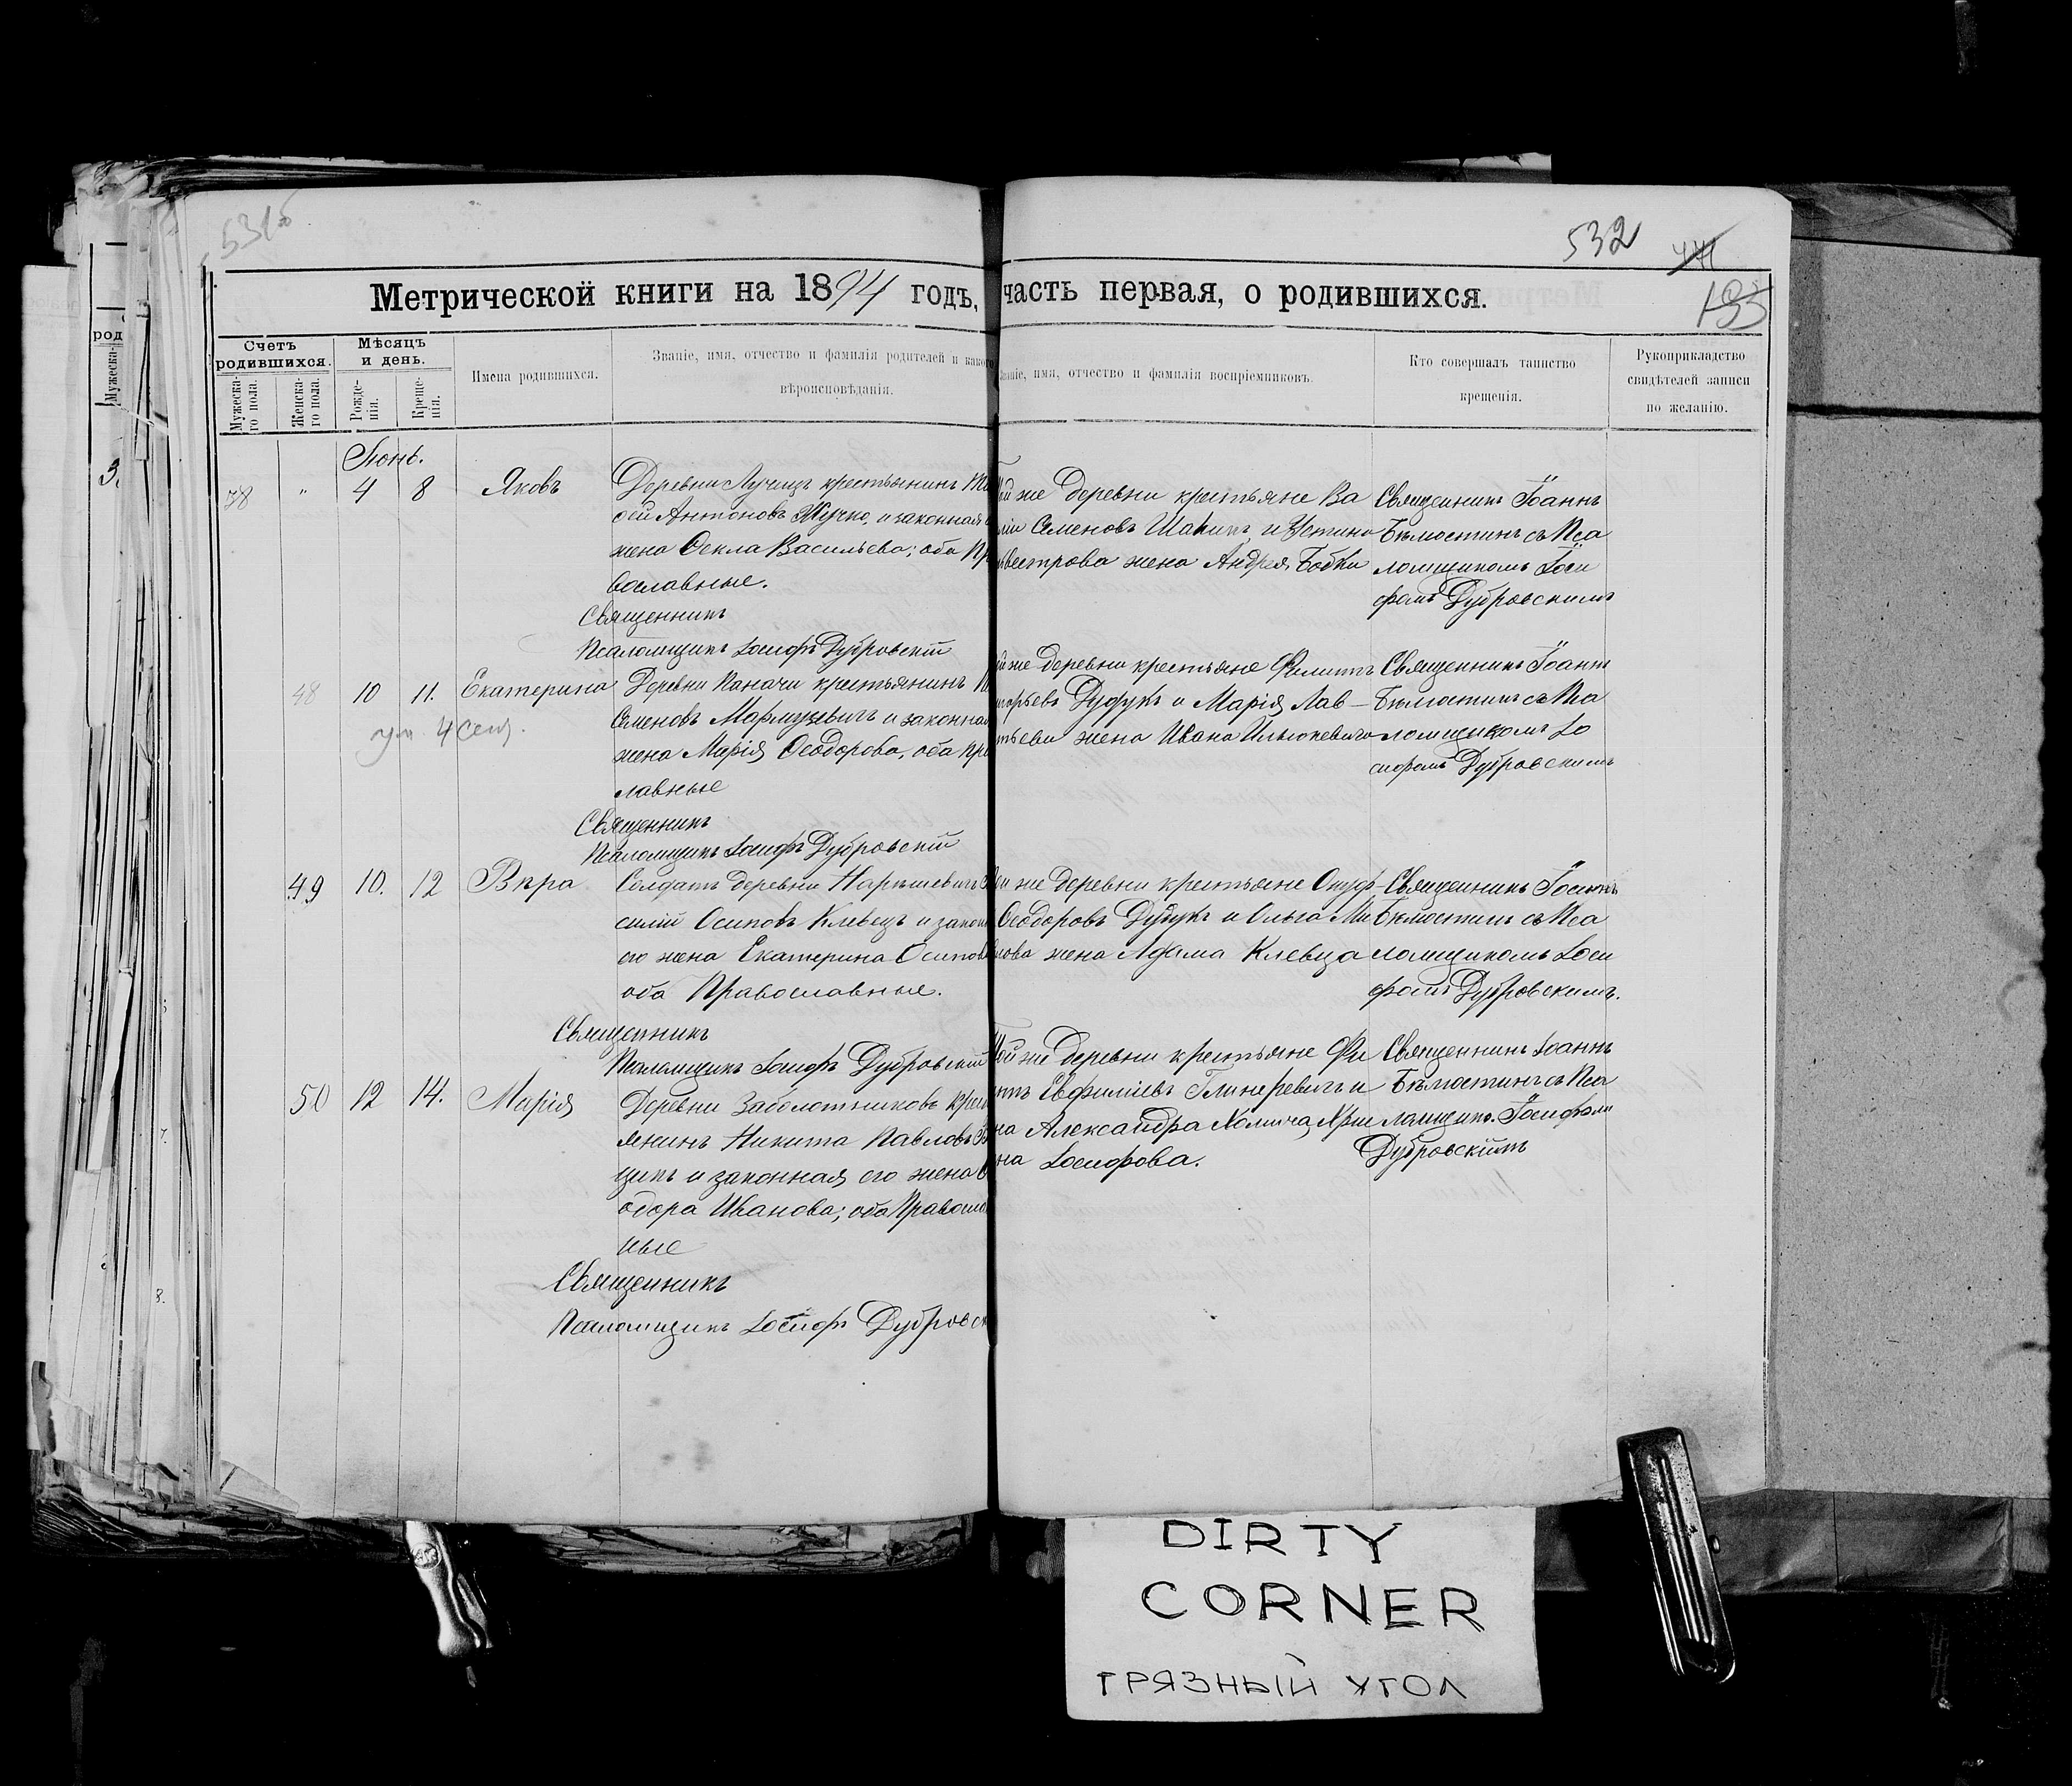 531об
532
441
135
Метрической книги на 1894 годъ, часть первая, о родившихся.
род
Мужеска-
Счетъ родившихся.
Мужеска-
го пола.
Женска-
го пола.
Мѣсяцъ и день.
Рожде-
нія.
Креще-
нія.
Имена родившихся.
Званіе, имя, отчество и фамилія родителей и какого
вѣроисповѣданія.
Званіе, имя, отчество и фамилія воспріемниковъ.
Кто совершалъ таинство
крещенія.
Рукоприкладство
свидѣтелей записи
по желанію.
Іюнь.
78 " 4 8 Яковъ
Деревни Лучицъ крестьянинъ
сей Антоновъ Жучко, и законная
жена Ѳекла Васильева; оба Пр
вославные.
Священникъ
Псаломщикъ Іосифъ Дубровскій
той же деревни крестьяне Ва
лій Семеновъ Шапикъ, и Устина
вестрова жена Андрея Бобки
Священникъ Іоаннъ
Бѣлостинъ съ Пса
ломщикомъ Іоси
фомъ Дубровскимъ
48 10 11. Екатерина
ум. 4 Сент.
Деревни Паначи крестьянинъ
Семеновъ Мармузевичъ и законная
жена Марія Ѳеодорова, оба пра
лавные
Священникъ
Псаломщикъ Іосифъ Дубровскій
й же деревни крестьяне Филиппъ
горьевъ Дудукъ и Марія Лав-
тьева жена Ивана Ильюкевича
Священникъ Іоаннъ
Бѣлостинъ съ Пса
ломщикомъ Іо
сифомъ Дубровскимъ
49 10. 12 Вѣра
Солдатъ деревни Нарышевичъ
силій Осиповъ Клевецъ и закон
его жена Екатерина Осипов
оба Православные.
Священникъ
Псаломщикъ Іосифъ Дубровскій
ой же деревни крестьяне Ону́ф-
Ѳеодоровъ Дудукъ и Ольга Ми
лова жена Адама Клевца
Священникъ Іоаннъ
Бѣлостинъ съ Пса
ломщикомъ Іоси
фомъ Дубровскимъ.
50 12 14. Марія
Деревни Заболотниковъ Крест
янинъ Никита Павловъ
щикъ и законная его жена Ѳ
одора Иванова; оба Правосла
ные
Священникъ
Псаломщикъ Іосифъ Дубровск
Той же деревни крестьяне Фи
ппъ Евфиміевъ Глинеревичъ и
на Александра Холича, Хрис
на Іосифова.
Священникъ Іоаннъ
Бѣлостинъ съ Пса
ломщико. Іосифом
Дубровскимъ
DIRTY
CORNER
ГРЯЗНЫЙ УГОЛ